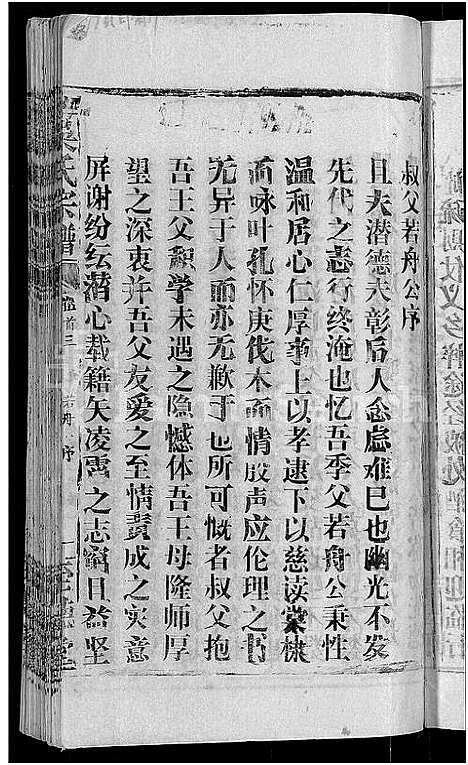 叔父若舟公序
且夫潜德未彰后人念虑难已也幽光不发
先代之志行终淹也忆吾季父若舟公秉性
温和居心仁厚事上以孝逮下以慈读棠棣
而咏叶孔怀庚伐木而情殷声应伦理之书
无异于人而亦无歉于也所可慨者叔父抱
吾王父积学未遇之隐憾体吾王母隆师厚
望之深衷许吾父友爱之至情责成之实意
屏谢纷纭潜心载籍矢凌云之志穷且益坚
氏宗谱
卷首三
若舟 序